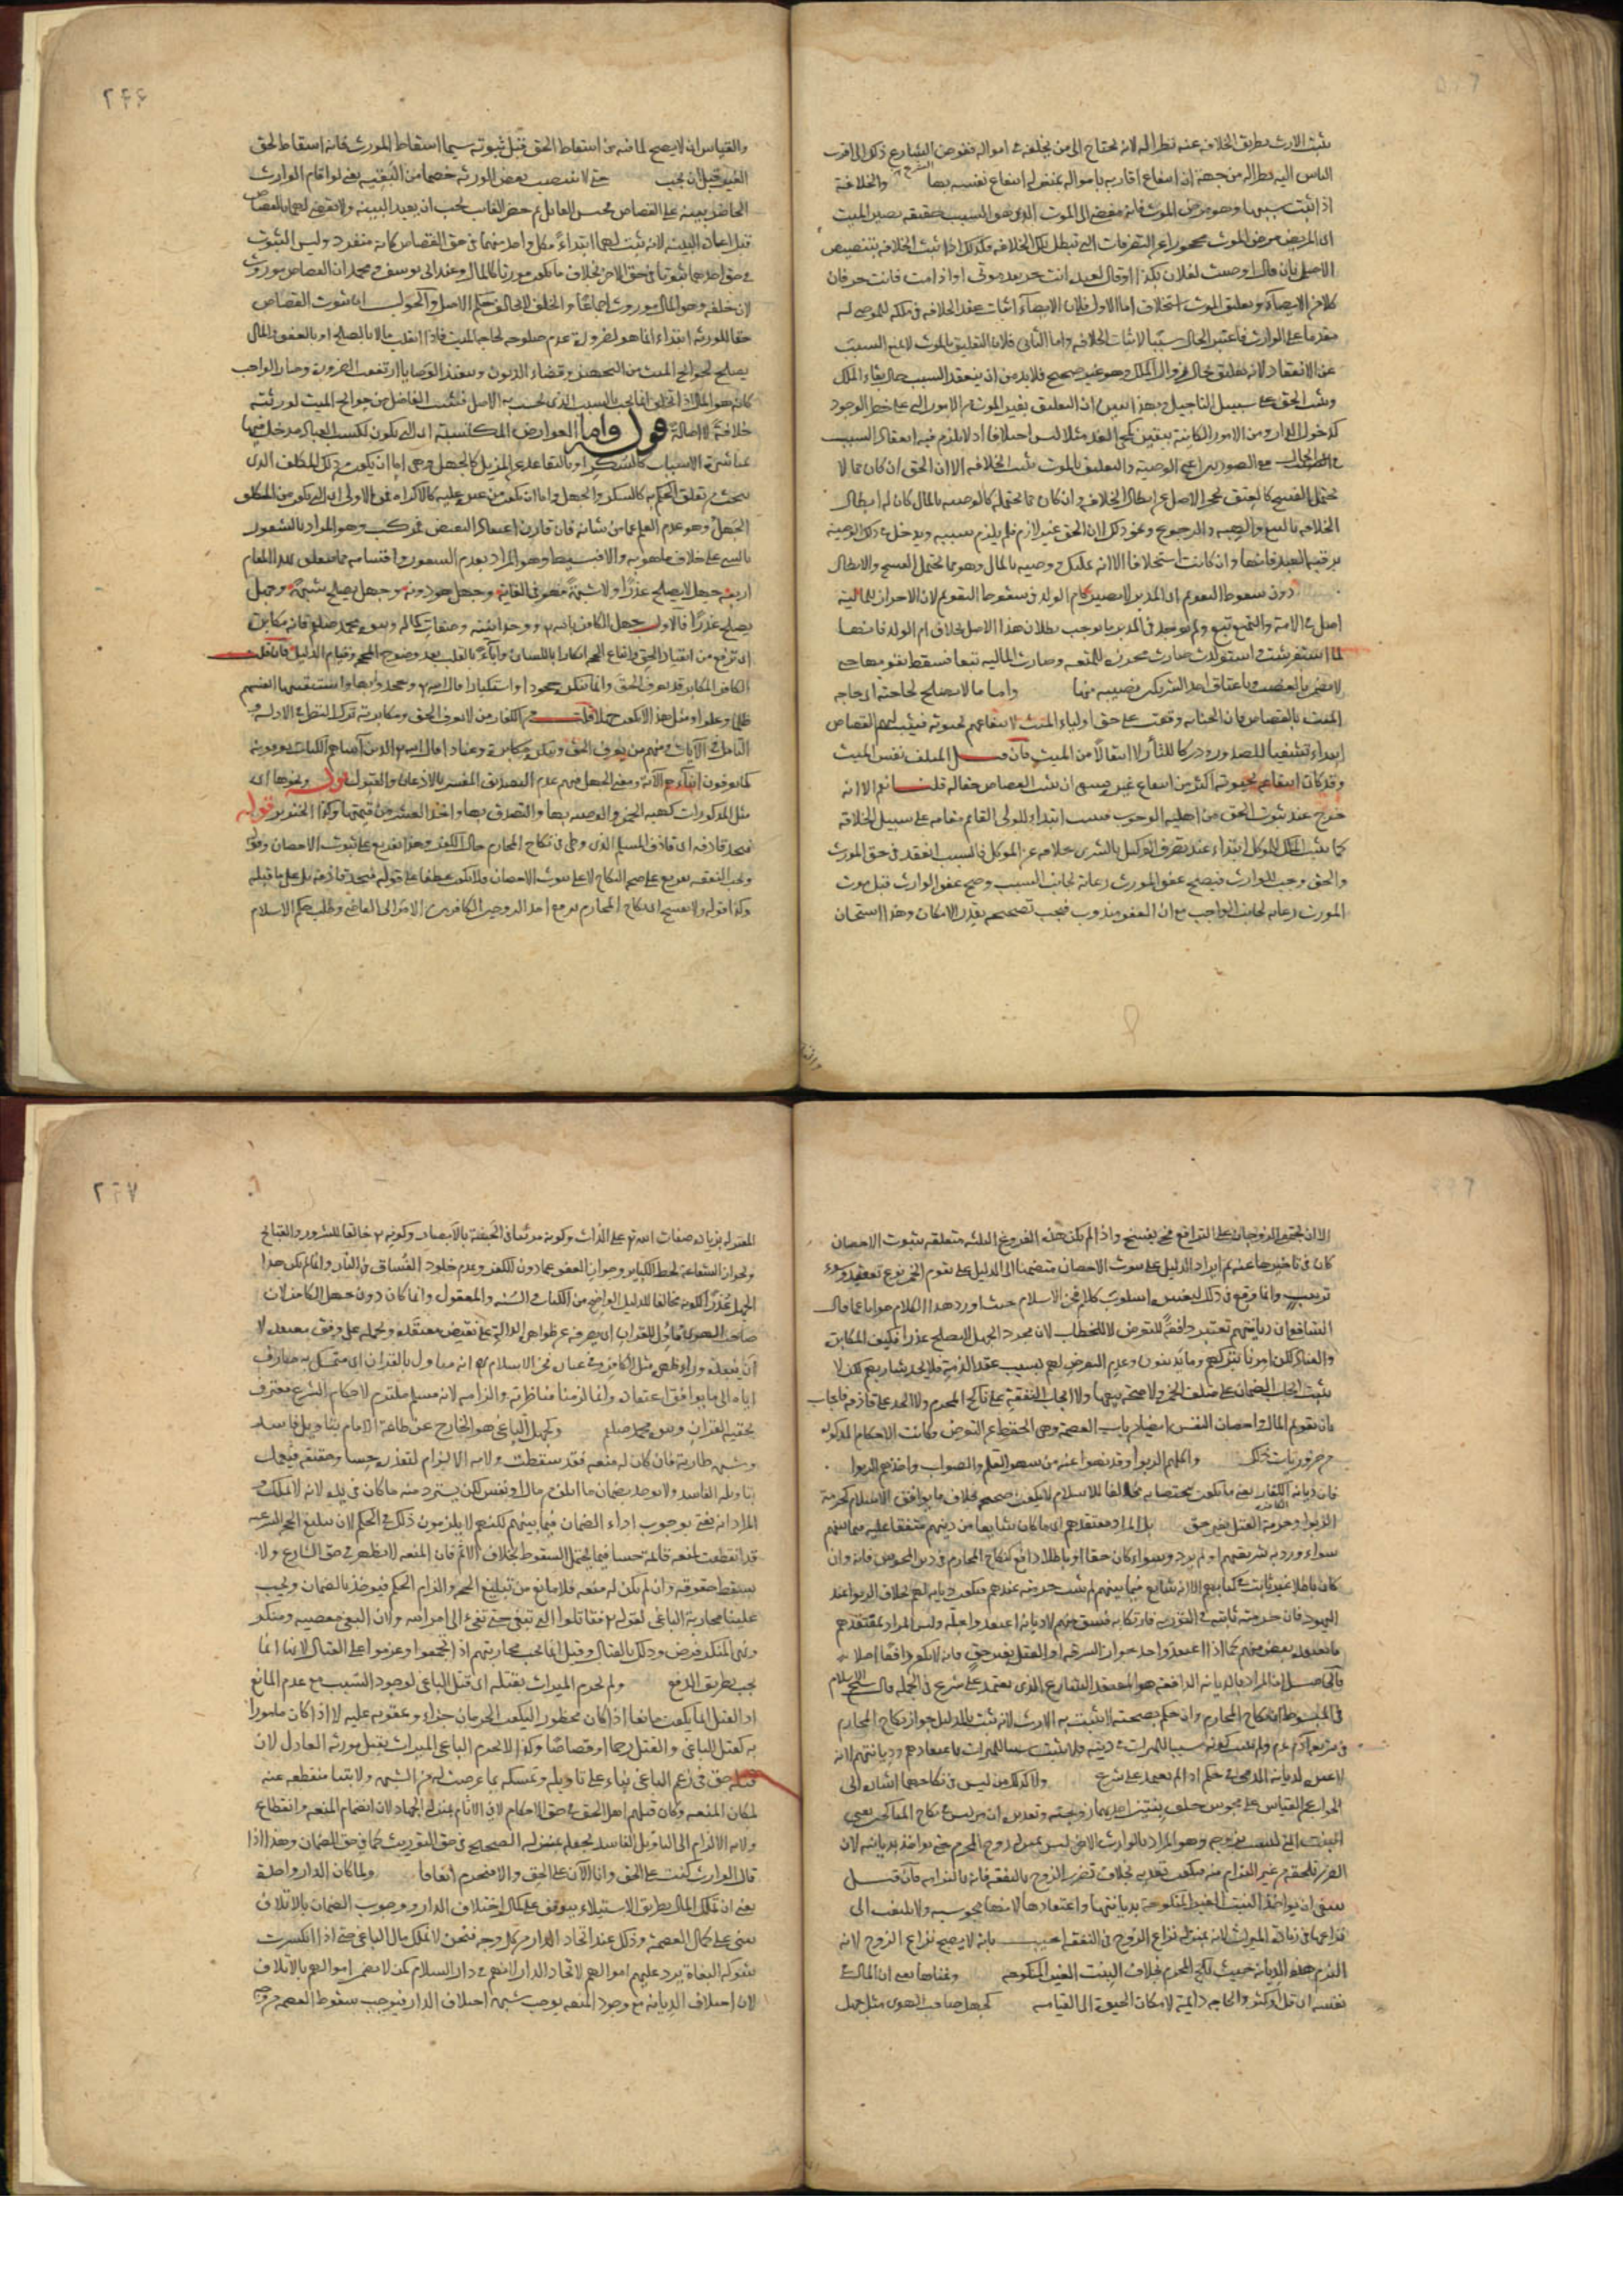 يثبت الارث بطريق الخلافة عنه نظرا له لانه يحتاج الى من يخلفه في امواله ففوض الشارع ذلك الى اقرب
الناس اليه نظرا له من جهة ان انتفاع اقاربه بامواله بمنزلة انتفاع نفسه بها والخلافة
اذا ثبت سببها وهو مرض الموت فانه مفض الى الموت الذي هو السبب حقيقة يصير الميت
اى المريض مرض الموت محجورا عن التصرفات التي تبطل تلك الخلافة فكذلك اذا ثبت الخلافة بتنصيص
الاصل بان قال اوصيت لفلان بكذا او قال لعبده انت حر بعد موتى او اذا مت فانت حر فان
كلا من الايصاء وتعليق الموت استخلاف اما الاول فلان الايصاء اثبات عقد الخلافة في ملكه للموصى له
مقدما على الوارث فاعتبر الحال سببا لاثبات الخلافة واما الثاني فلان التعليق بالموت لا يمنع السبب
عن الانعقاد لانه تعليق بحال زوال الملك وهو غير صحيح فلا بد من ان ينعقد السبب حال بقاء الملك
ويثبت الحق على سبيل التاجيل وبهذا تبين ان التعليق بغير الموت من الامور التي على خطر الوجود
كدخول الدار ومن الامور الكائنة بيقين كمجئ الغد مثلا ليس استخلافا اذ لا يلزم فيه انعقاد السبب
في الحال مع الصورتين اعنى الوصية والتعليق بالموت يثبت الخلافة الا ان الحق ان كان مما لا
يحتمل الفسخ كالعتق يحجر الاصل عن ابطال الخلافة وان كان مما يحتمله كالوصية بالمال كان له ابطال
الخلافة بالبيع والهبة والرجوع ونحو ذلك لان الحق غير لازم فلم يلزم سببه ويدخل في ذلك الوصية
برقبة العبد فانها وان كانت استخلافا الا انه تمليك ووصية بالمال وهو مما يحتمل الفسخ والابطال
دون سقوط التقوم اى المدبر لا يصير كام الولد في سقوط التقوم لان الاحراز للمالية
اصل في الامة والتمتع تبع ولم يوجد في المدبر ما يوجب بطلان هذا الاصل بخلاف ام الولد فانها
لما استفرشت واستولدت صارت محرزة للمتعة وصارت المالية تبعا فسقط تقومها حتى
لا تضمن بالغصب وباعتاق احد الشريكين نصيبه منها واما ما لا يصلح لحاجته اى حاجة
الميت فالقصاص فان الجناية وقعت على حق اولياء الميت لانتفاعهم بحيوته فيثبت لهم القصاص
ابتداء تشفيا للصدور ودركا للثار لا انتقالا من الميت فان قيل المتلف نفس الميت
وقد كان انتفاعه بحيوته اكثر من انتفاع غيره فينبغى ان يثبت القصاص حقا له قلنا نعم الا انه
خرج عند ثبوت الحق من اهلية الوجوب فيثبت ابتداء للولى القائم مقامه على سبيل الخلافة
كما يثبت الملك للموكل ابتداء عند تصرف الوكيل بالشرى خلافة عن الموكل فالسبب انعقد في حق المورث
والحق وجب للوارث فيصح عفو المورث رعاية لجانب السبب وصح عفو الوارث قبل موت
المورث رعاية لجانب الواجب مع ان العفو مندوب فيجب تصحيحه بقدر الامكان وهذا استحسان
٢٤٦
والقياس ان لا يصح لما فيه من اسقاط الحق قبل ثبوته سيما اسقاط المورث فانه اسقاط لحق
الغير قبل ان يجب حتى لا ينتصب بعض الورثة خصما من البقية يعنى لو اقام الوارث
الحاضر بينة على القصاص فحبس القاتل ثم حضر الغائب يجب ان يعيد البينة ولا يقضى لهما بالقصاص
قبل اعادة البينة لانه يثبت لهما ابتداء فكل واحد منهما في حق القصاص كانه منفرد وليس الثبوت
في حق احدهما ثبوتا في حق الاخر بخلاف ما يكون موروثا كالمال وعند ابى يوسف ومحمد ان القصاص موروث
لان خلفه وهو المال موروث اجماعا والخلف لا يخالف حكم الاصل والجواب ان ثبوت القصاص
حقا للورثة ابتداء انما هو لضرورة عدم صلوحه لحاجة الميت فاذا انقلب مالا بالصلح او بالعفو والمال
يصلح لحوائج الميت من التجهيز وقضاء الديون وتنفيذ الوصايا ارتفعت الضرورة وصار الواجب
كانه هو المال اذ الخلف انما يجب بالسبب الذى يجب به الاصل فيثبت الفاضل من حوائج الميت لورثته
خلافة لا اصالة قوله واما العوارض المكتسبة اى التى يكون لكسب العباد مدخل فيها
بمباشرة الاسباب كالسكر او بالتقاعد عن المزيل كالجهل وهى اما ان يكون من ذلك المكلف الذى
يبحث عن تعلق الحكم به كالسكر والجهل واما ان يكون من غيره عليه كالاكراه فمن الاولى اى التى يكون من المكلف
الجهل وهو عدم العلم عما من شانه فان قارن اعتقاد النقيض فمركب وهو المراد بالشعور
بالشئ على خلاف ما هو به والا فبسيط وهو المراد بعدم الشعور واقسامه فيما يتعلق بهذا المقام
اربعة جهل لا يصلح عذرا ولا شبهة فهو في الغاية وجهل هو دونه وجهل يصلح شبهة وجهل
يصلح عذرا فالاول جهل الكافر بالله تعالى ووحدانيته وصفات كماله ونبوة محمد صلعم فانه مكابرة
اى ترفع عن انقياد الحق واتباع الحجة انكارا باللسان واباء بالقلب بعد وضوح الحجة وقيام الدليل فان قلت
الكافر المكابر قد يعرف الحق وانما ينكره جحودا واستكبارا قال الله تعالى وجحدوا بها واستيقنتها انفسهم
ظلما وعلوا ومثل هذا لا يكون جهلا قلت من الكفار من لا يعرف الحق ومكابرته ترك النظر في الادلة و
التامل في الآيات ومنهم من يعرف الحق وينكره مكابرة وعنادا قال الله تعالى الذين آتيناهم الكتاب يعرفونه
كما يعرفون ابناءهم الآية ومعنى الجهل فيهم عدم التصديق المفسر بالاذعان والقبول قوله ونحوها اى
مثل المذكورات كهبة الخمر والوصية بها والتصدق بها واخذ العشر من قيمتها وكذا الخنزير قوله
فيحد قاذفه اى قاذف المسلم الذى وطى في نكاح المحارم حال الكفر وهذا تفريع على ثبوت الاحصان وقوله
وتجب النفقة تفريع على صحة النكاح لا على ثبوت الاحصان فلا يكون عطفا على قوله فيحد قاذفه بل على ما قبله
وكذا قوله ولا يفسخ اى نكاح المحارم برفع احد الزوجين الكافرين الامر الى القاضى وطلب حكم الاسلام
الا ان يجتمع الزوجان على الترافع فح يفسخ واذا لم يكن هذه الفروع الثلثة متعلقة بثبوت الاحصان
كان في تاخيرها عنه ثم ايراد الدليل على ثبوت الاحصان متضمنا الى الدليل على تقوم الخمر نوع تعقيد وسوء
ترتيب وانما وقع في ذلك لتغييره اسلوب كلام فخر الاسلام حيث اورد هذا الكلام جوابا عما قال
الشافعى ان ديانتهم تعتبر دافعة للتعرض لا للخطاب لان مجرد الجهل لا يصلح عذرا فكيف المكابرة
والعناد لكن امرنا بتركهم وما يدينون وعدم التعرض لهم بسبب عقد الذمة فلا يحد شاربهم لكن لا
يثبت ايجاب الضمان على متلف الخمر ولا صحة بيعها ولا ايجاب النفقة على ناكح المحرم ولا الحد على قاذفه فاجاب
بان تقويم المال واحصان النفس ايضا من باب العصمة وهى الحفظ عن التعرض وكانت الاحكام المذكورة
من ضروريات ذلك واكلهم الربوا وقد نهوا عنه من سهو القلم والصواب واخذهم الربوا
فان ديانة الكفار يعنى ما يكون مختصا به مخالفا للاسلام لا يكون صحيحة بخلاف ما يوافق الاسلام كحرمة
الزنا وحرمة القتل بغير حق بل المراد معتقدهم اى ما كان شايعا من دينهم متفقا عليه فيما بينهم
سواء ورد به شريعتهم او لم يرد وسواء كان حقا او باطلا دافع كنكاح المحارم في دين المجوس فانه وان
كان باطلا غير ثابت في كتابهم الا انه شايع فيما بينهم لم يثبت حرمته عندهم فيكون ديانة لهم بخلاف الربوا عند
اليهود فان حرمته ثابتة في التورية فارتكابه فسق منهم لا ديانة اعتقدوا حله وليس المراد بمعتقدهم
ما يعتقده بعض منهم كما اذا اعتقد واحد جواز السرقة او القتل بغير حق فانه لا يكون دافعا اصلا
فالحاصل ان المراد بالديانة الدافعة هو المعتقد الشايع الذى يعتمد على شرع في الجملة قال شيخ الاسلام
في المبسوط ان نكاح المحارم وان حكم بصحته لا يثبت به الارث لانه ثبت بالدليل جواز نكاح المحارم
في شريعة آدم عم ولم يثبت كونه سببا للميراث في دينه فلا يثبت سببا للميراث باعتقادهم وديانتهم لانه
لا عبرة لديانة الذمى في حكم اذا لم يعتمد على شرع ولا كذلك من ليس في نكاحهما اشارة الى
الجواب عن القياس على مجوسى خلف بنتين احديهما زوجته وتقديره ان من ليس في نكاح المتناكحين يعنى
البنت التي ليست بزوجة وهو المراد بالوارث الاخر ليس بمنزلة زوج المحرم حتى يؤاخذ بديانته لان
الضرر يلحقه من غير التزام منه فيكون تعدية بخلاف تضرر الزوج بالنفقة فانه بالتزامه فان قيل
ينبغى ان يؤاخذ البنت الغير المنكوحة بديانتها واعتقادها لانها مجوسية ولا يلتفت الى
نزاعها في زيادة الميراث لانه بمنزلة نزاع الزوج في النفقة اجيب بانه لا يصح نزاع الزوج لانه
التزم هذه الديانة حيث نكح المحرم بخلاف البنت الغير المنكوحة ومعناها يعنى ان المال في
نفسه ان قل او كثر والحاجة دائمة لامكان الحيوة الى القيامة كجهل صاحب الهوى مثل جهل
٢٤٧
المعتزلة بزيادة صفات الله تعالى على الذات وكونه مرئيا في الجنة بالابصار وكونه تعالى خالقا للشرور والقبائح
وبجواز الشفاعة لحط الكبائر وجواز العفو عما دون الكفر وعدم خلود الفساق في النار وانما لم يكن هذا
الجهل عذرا لكونه مخالفا للدليل الواضح من الكتاب والسنة والمعقول وانما كان دون جهل الكافر لان
صاحب الهوى ماول للقران اى يصرفه عن ظواهره الدالة على نقيض معتقده ويحمله على وفق معتقده لا
ان ينبذه وراء ظهره مثل الكافر وفي عبارة فخر الاسلام انه متاول بالقران اى متمسك به صارف
اياه الى ما يوافق اعتقاده وانما لزمنا مناظرته والزامه لانه مسلم ملتزم لاحكام الشرع معترف
بحقية القران ونبوة محمد صلعم وكجهل الباغى هو الخارج عن طاعة الامام بتاويل فاسد
وشبهة طارية فان كان له منعة فقد سقطت ولاية الالزام لتعذره حسا وحقيقة فيعمل
بتاويله الفاسد ولا يؤاخذ بضمان ما اتلف من مال او نفس لكن يسترد منه ما كان في يده لانه لا يملكه و
المراد انه يفتى بوجوب اداء الضمان فيما بينهم لكنهم لا يلزمون ذلك في الحكم لان تبليغ الحجة الشرعية
قد انقطعت بمنعة قائمة حسا فيما يحتمل السقوط بخلاف الاثم فان المنعة لا يظهر في حق الشارع ولا
يسقط حقوقه وان لم يكن له منعة فلا مانع من تبليغ الحجة والزام الحكم فيؤخذ بالضمان ويجب
علينا محاربة الباغى لقوله تعالى فقاتلوا التي تبغى حتى تفئ الى امر الله ولان البغى معصية ومنكر
ونهى المنكر فرض وذلك بالقتال وقيل انما يجب محاربتهم اذا تجمعوا وعزموا على القتال لانها انما
يجب بطريق الدفع ولم نحرم الميراث بقتله اى قتل الباغى لوجود السبب مع عدم المانع
اذ القتل انما يكون مانعا اذا كان محظورا ليكون الحرمان جزاء وعقوبة عليه لا اذا كان مامورا
به كقتل الباغى والقتل رجما او قصاصا وكذا لا يحرم الباغى الميراث بقتل مورثه العادل لان
قتله حق في زعم الباغى بناء على تاويله وتمسكه بما عرضت له من الشبهة ولايتنا منقطعة عنه
لمكان المنعة وكان قتلهم اهل الحق في حق الاحكام لا في الاثام بمنزلة الجهاد لان انضمام المنعة وانقطاع
ولاية الالزام الى التاويل الفاسد يجعله بمنزلة الصحيح في حق التوريث كما في حق الضمان وهذا اذا
قال الوارث كنت على الحق وانا الان على الحق والا فيحرم اتفاقا ولما كان الدار واحدة
يعنى ان تملك المال بطريق الاستيلاء يتوقف على كمال اختلاف الدار ووجوب الضمان بالاتلاف
يبتنى على كمال العصمة وذلك عند اتحاد الدار من كل وجه فنحن لا نملك مال الباغى حتى اذا انكسرت
شوكة البغاة يرد عليهم اموالهم لاتحاد الدار لانهم في دار السلام لكن لا نضمن اموالهم بالاتلاف
لان اختلاف الديانة مع وجود المنعة يوجب شبهة اختلاف الدار فيوجب سقوط العصمة من وجه